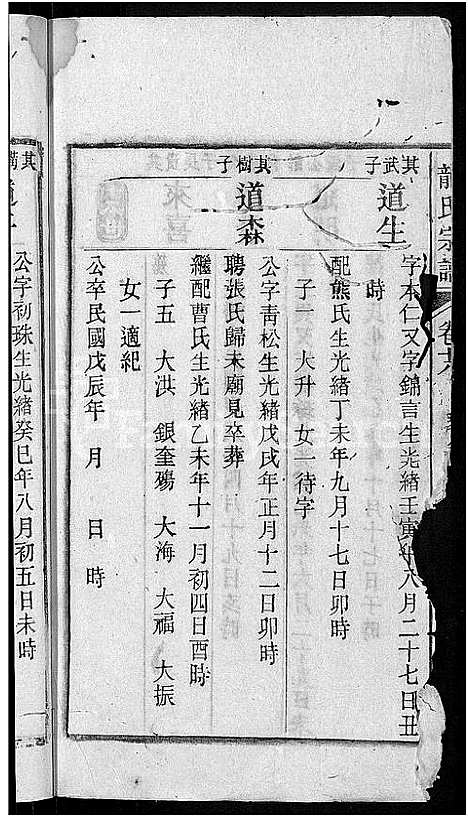 龍氏宗譜
卷
其武子
道生
字本仁又字錦言生光緒壬寅年八月二十七日丑
時
配熊氏生光緒丁未年九月十七日卯時
子一 大升 女一待字
其樹子
道森
公字靑松生光緒戊戌年正月十二日卯時
聘張氏歸未廟見卒葬
繼配曹氏生光緒乙未年十一月初四日酉時
子五 大洪 銀奎殤 大海 大福 大振
女一適紀
公卒民國戊辰年 月 日 時
其
道
公字初珠生光緒癸巳年八月初五日未時